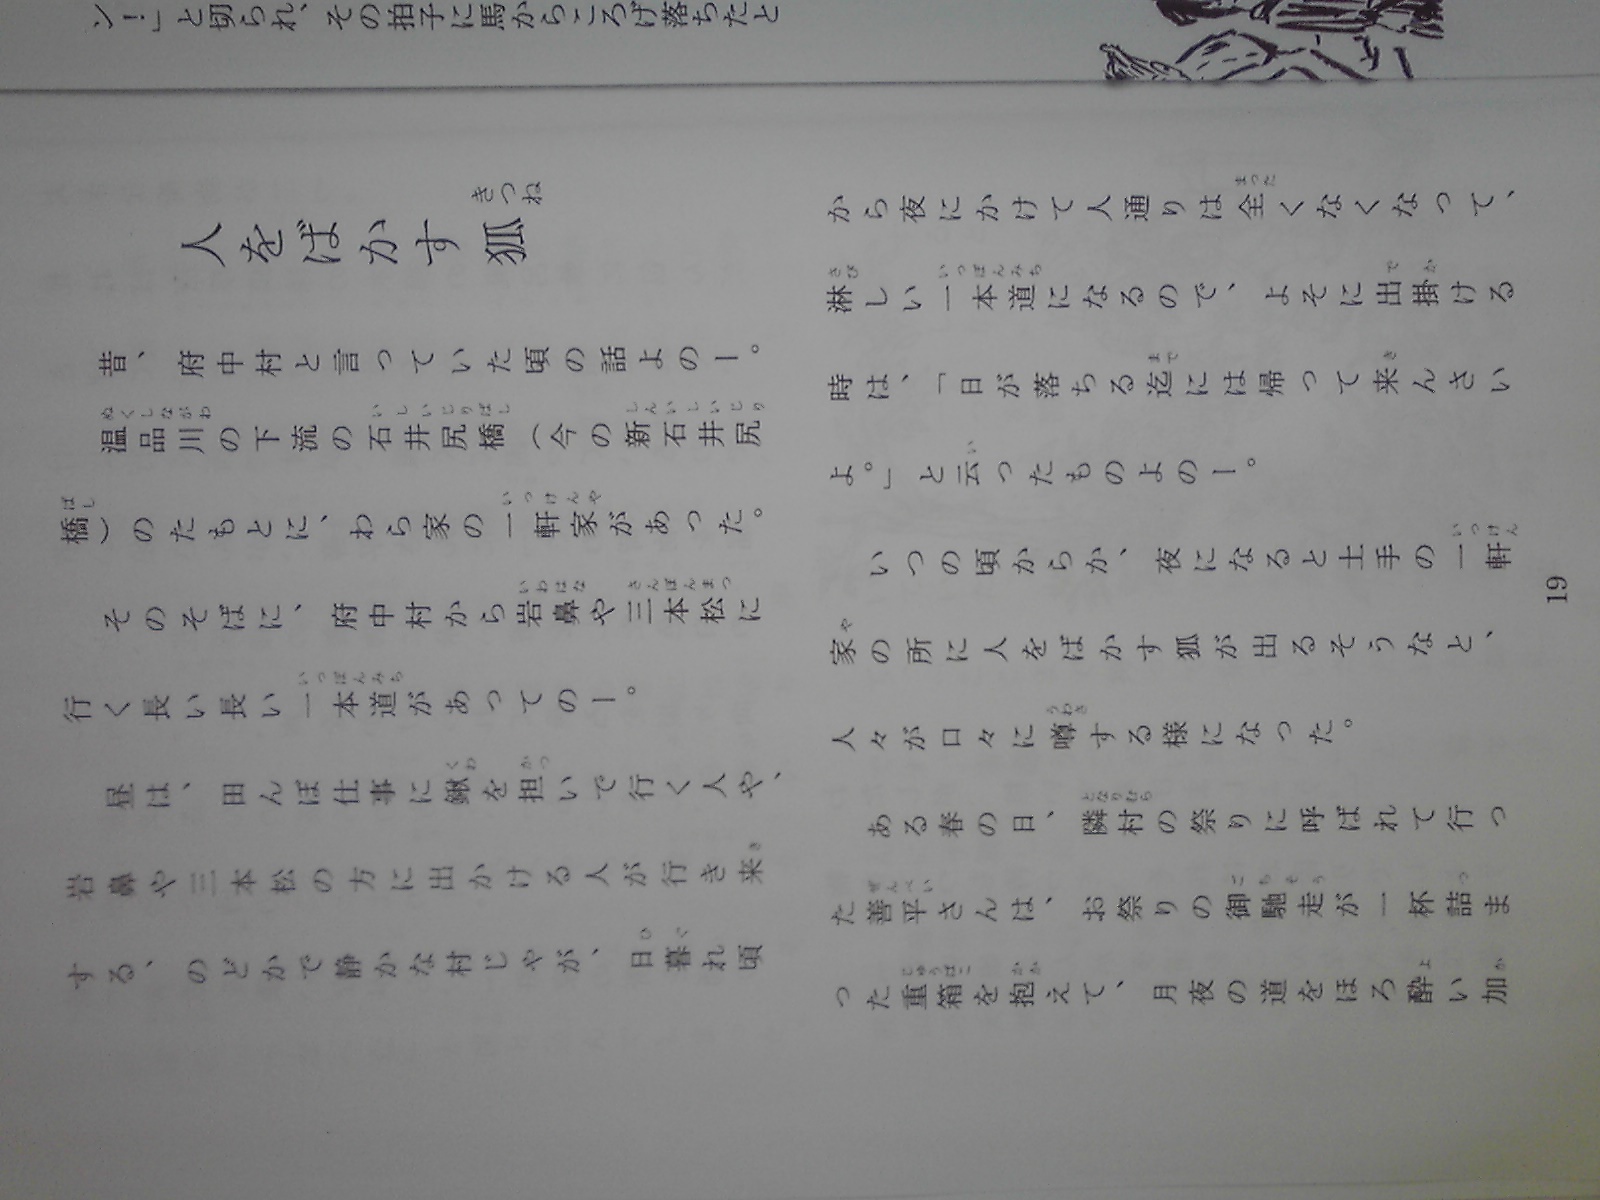 ン！」と切られ、その拍子に馬からころげ落ちたと
人をばかす狐
昔、府中村と言っていた頃の話よのー。
温品川の下流の石井尻橋（今の新石井尻
橋）のたもとに、わら家の一軒家があった。
そのそばに、府中村から岩鼻や三本松に
行く長い長い一本道があってのー。
昼は、田んぼ仕事に鍬を担いで行く人や、
岩鼻や三本松の方に出かける人が行き来
する、のどかで静かな村じゃが、日暮れ頃
から夜にかけて人通りは全くなくなって、
淋しい一本道になるので、よそに出掛ける
時は、「日が落ちる迄には帰って来んさい
よ。」と云ったものよのー。
いつの頃からか、夜になると土手の一軒
家の所に人をばかす狐が出るそうなと、
人々が口々に噂する様になった。
ある春の日、隣村の祭りに呼ばれて行っ
た善平さんは、お祭りの御馳走が一杯詰ま
った重箱を抱えて、月夜の道をほろ酔い加
19